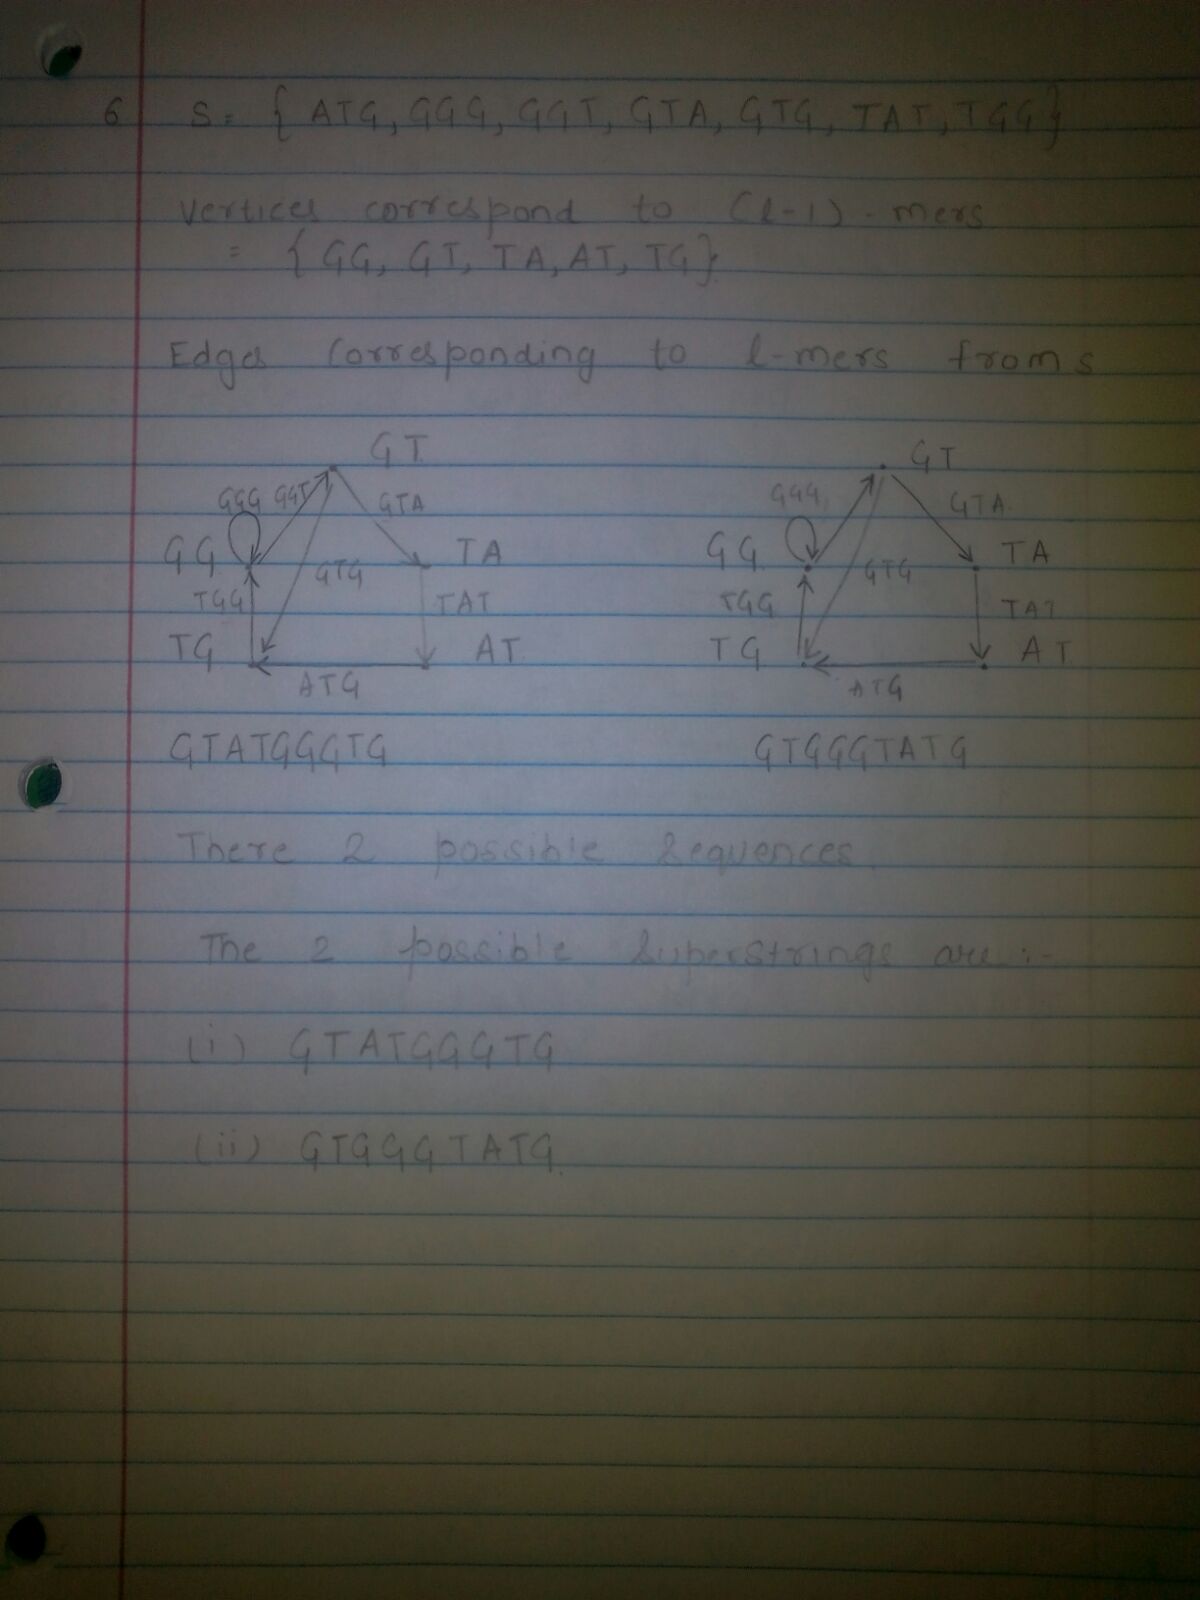 6 S = { ATG, GGG, GGT, GTA, GTG, TAT, TGG}
Vertices correspond to (l-1)-mers
= { GG, GT, TA, AT, TG}
Edges Corresponding to l-mers from s
GT GT
GGG GGT GTA GGG GTA
GG TA GG TA
GTG GTG
TGG TAT TGG TAT
TG AT TG AT
ATG ATG
GTATGGGTG GTGGGTATG
There 2 possible Sequences
The 2 possible Superstrings are :-
(i) GTATGGGTG
(ii) GTGGGTATG